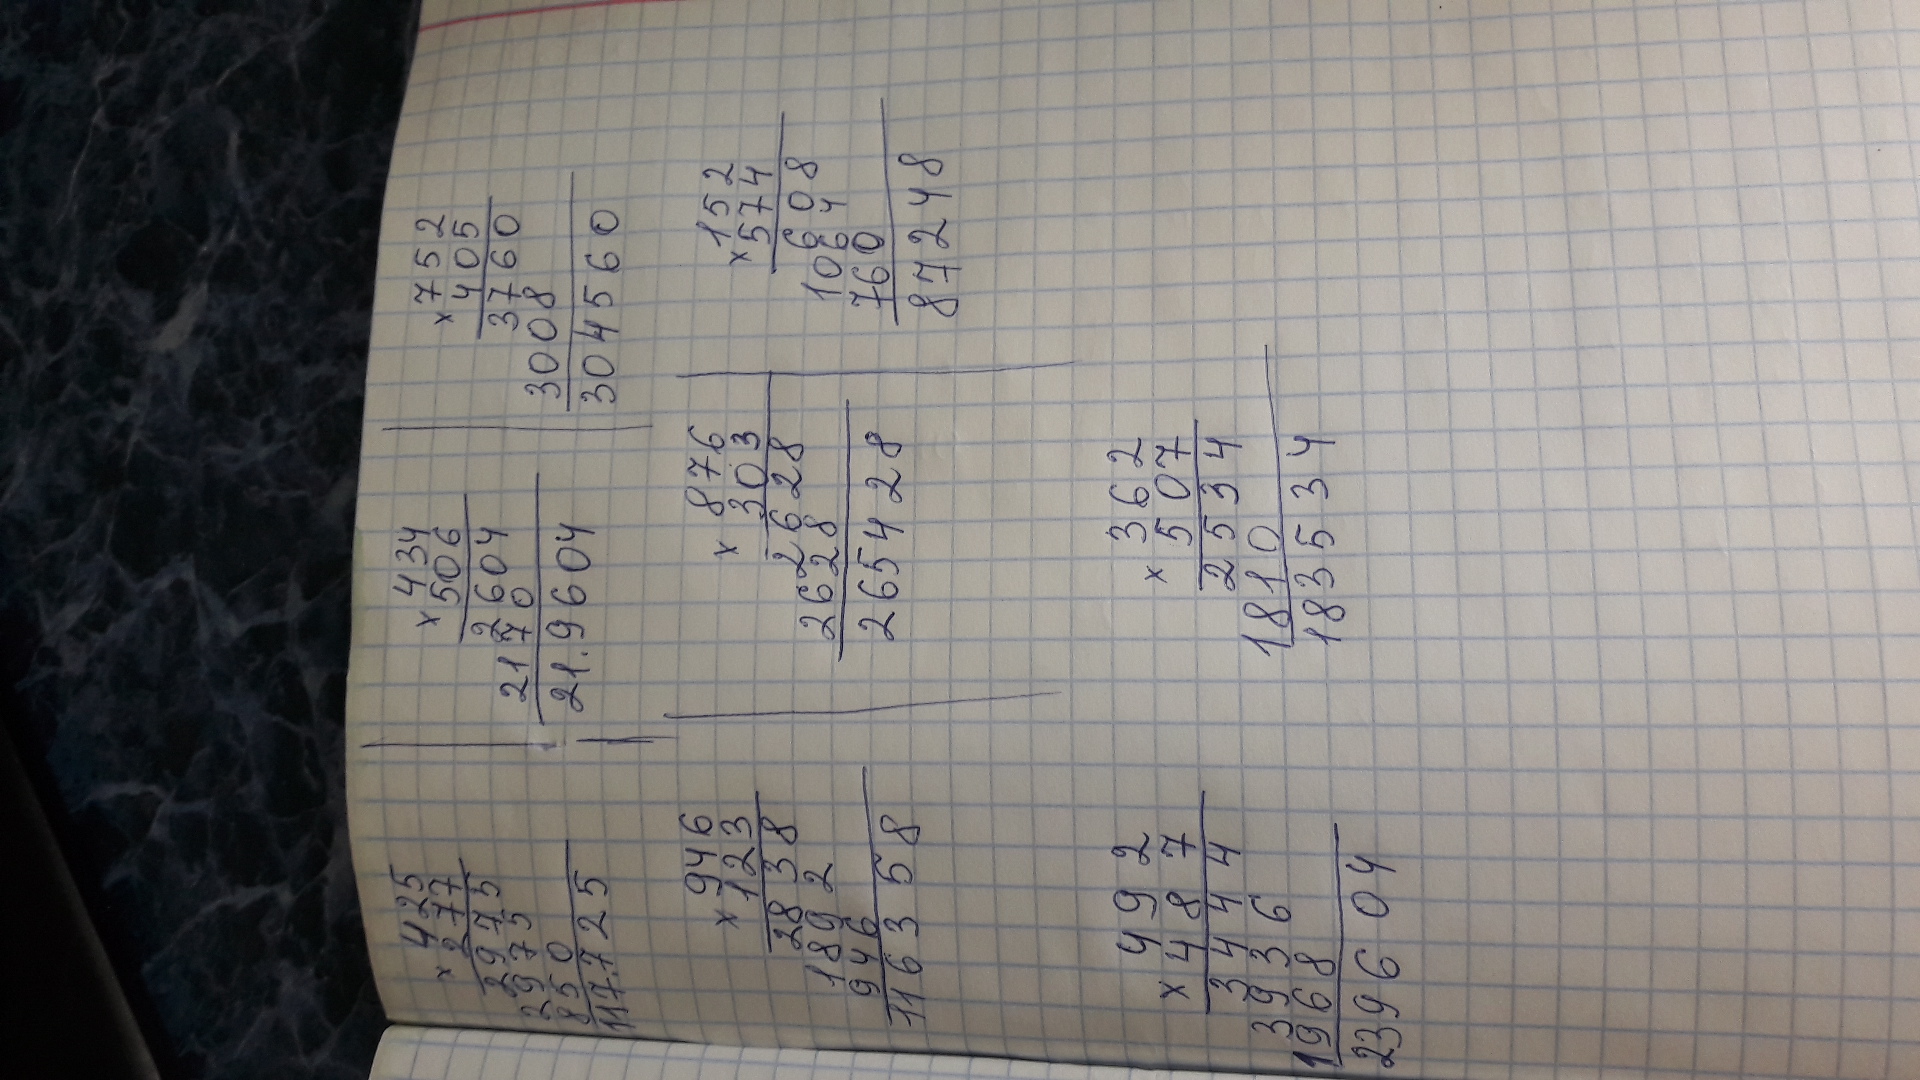 × 425
277
2975
2975
850
117.725
× 434
506
2604
2170
21.9604
× 752
405
3760
3008
304560
× 946
123
2838
1892
946
116358
× 876
303
2628
2628
265428
× 152
574
608
1064
760
87248
× 492
487
3444
3936
1968
239604
× 362
507
2534
1810
183534